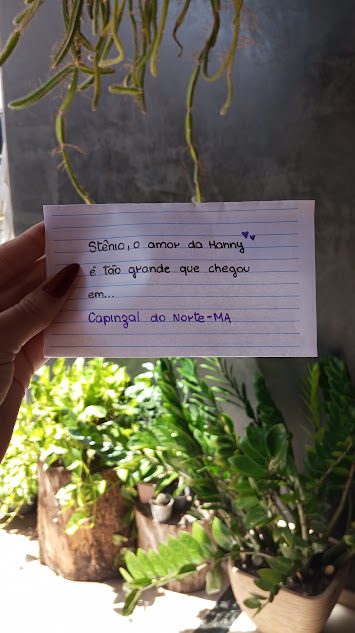 Stênio, o amor da Hanny
é tão grande que chegou
em...
Capinzal do Norte-MA